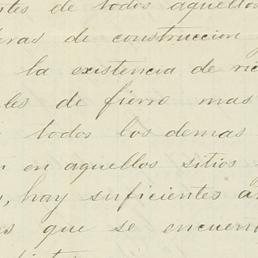 tes de todos aquellos
eras de construccion
la existencia de ric
les de fierro mas
todos los demas
en aquellos sitios
, hay suficientes a
s que se encuen